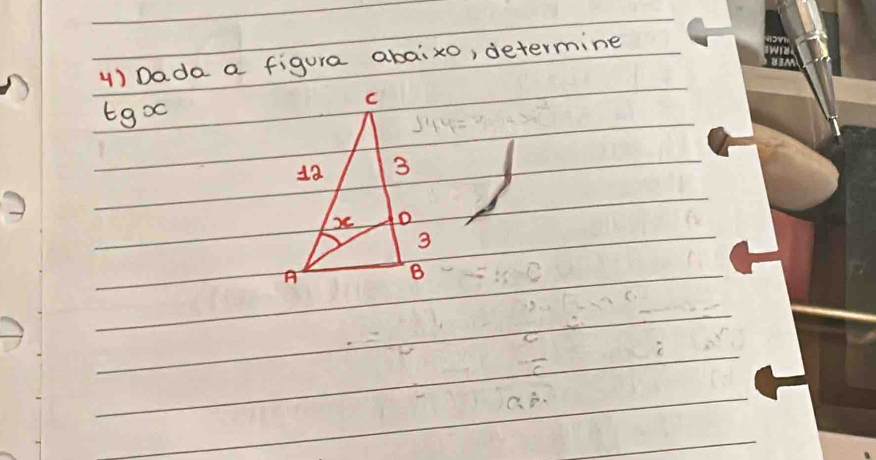 4) Dada a figura abaixo, determine
tgx
C
12
3
x
D
3
A
B